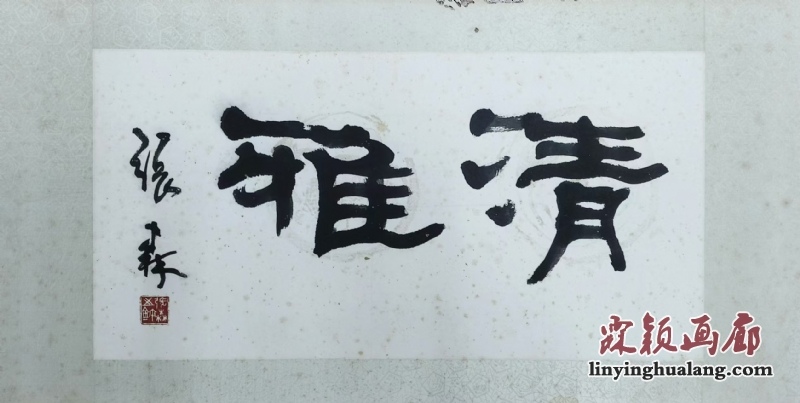 清雅
張森
霖颖画廊
linyinghualang.com